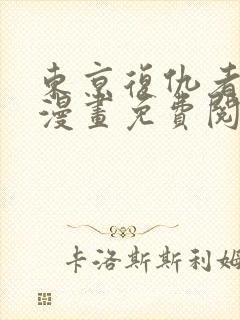 東京復仇者
漫畫免費閱
卡洛斯斯利姆